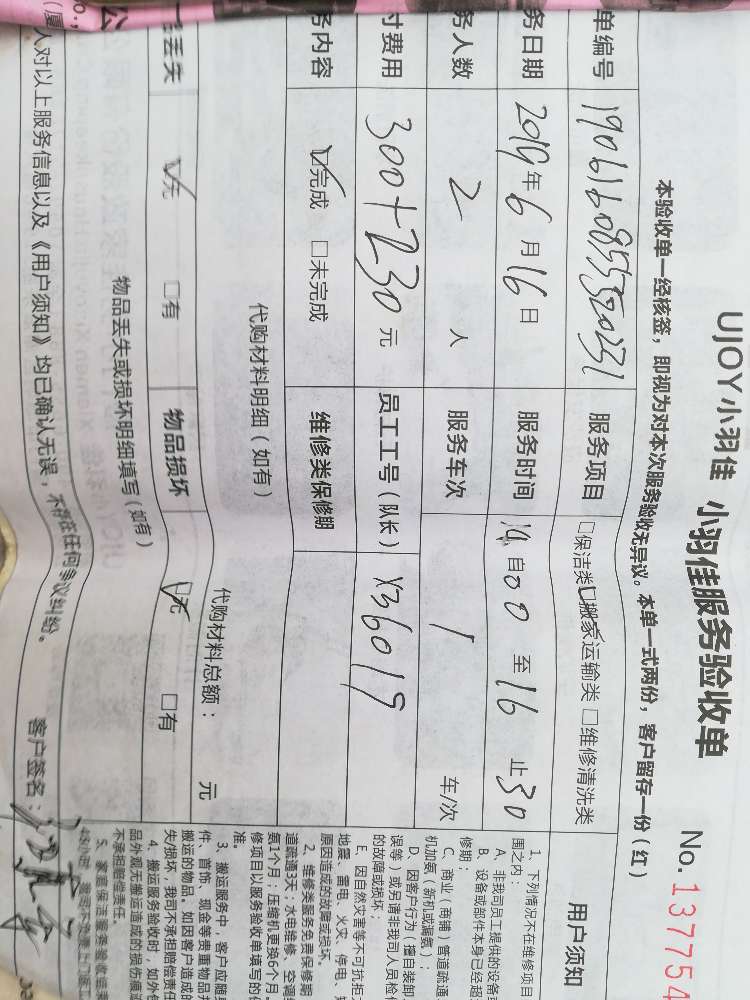 UJOY小羽佳 小羽佳服务验收单 No.137754
本验收单一经核签，即视为对本次服务验收无异议。本单一式两份，客户留存一份（红）
单编号 服务项目 □保洁类 ☑搬家运输类 □维修清洗类
务日期 2019年6月16日 服务时间 14自00至16止30
务人数 2 人 服务车次 1 车/次
付费用 300+230 元 员工工号（队长） X36019
务内容 ☑完成 □未完成 维修类保修期
代购材料明细（如有）
代购材料总额： 元
丢失 ☑无 □有 物品损坏 ☑无 □有
物品丢失或损坏明细填写（如有）
人对以上服务信息以及《用户须知》均已确认无误，不存在任何争议纠纷。
客户签名：
用户须知
1、下列情况不在维修项目
围之内：
A、非我司员工提供的设备
B、设备或部件本身已经超
修期；
C、商业（商铺）管道疏通
机加氨（新机或漏氨）；
D、因客户行为（擅自装卸
误等）或另请非我司人员检
的故障或损坏；
E、因自然灾害等不可抗拒
地震、雷电、火灾、停电、
原因造成的故障或损坏。
2、维修类服务免费保修期
道疏通3天；水电维修、空调
氨1个月；压缩机更换6个月。
修项目以服务验收单填写的
准。
3、搬运服务中，客户应随
件、首饰、现金等贵重物品
搬运的物品。如因客户造成的
失/损坏，我司不承担赔偿责任
4、搬运服务验收时，如外包
品外观无搬运造成的损伤痕迹
不承担赔偿责任。
5、家庭保洁服务验收